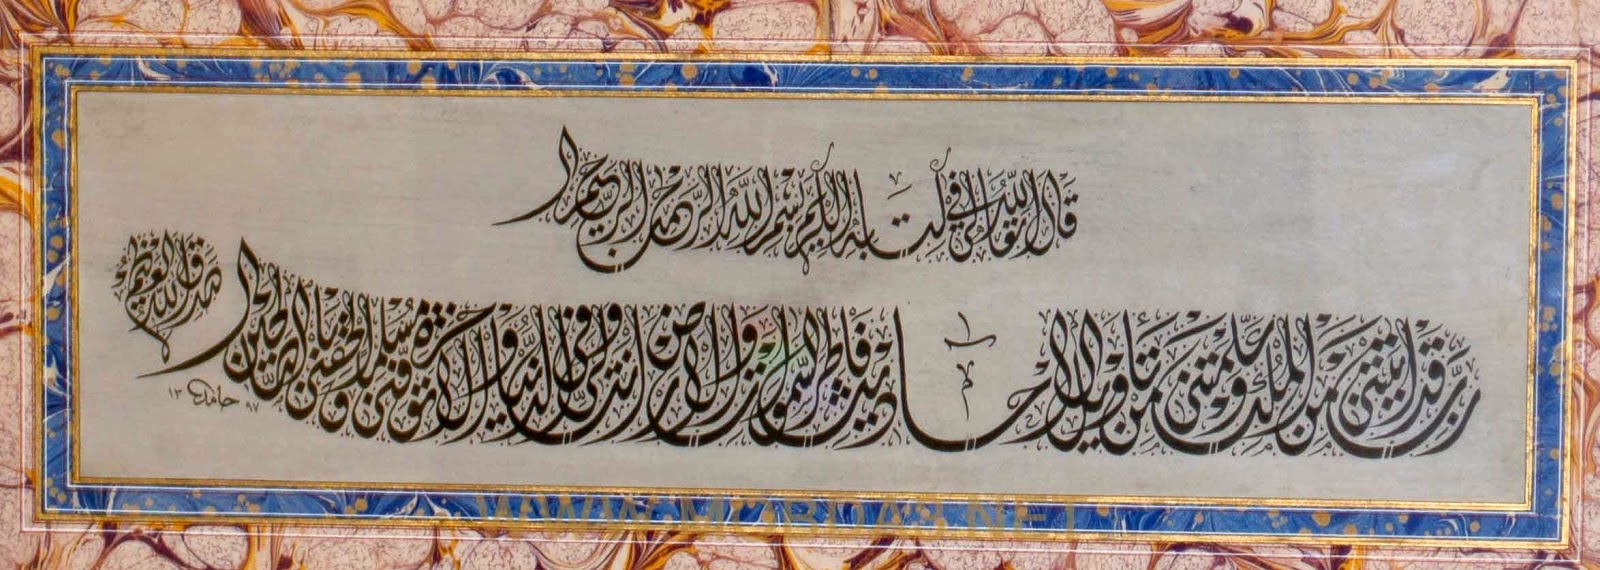 قال الله تعالى في كتابه الكريم بسم الله الرحمن الرحيم
رب قد آتيتني من الملك وعلمتني من تأويل الأحاديث فاطر السموات والأرض أنت وليي في الدنيا والآخرة توفني مسلما وألحقني بالصالحين
صدق الله العظيم
حامد ١٣٩٧
WWW.MOBDA3.NET